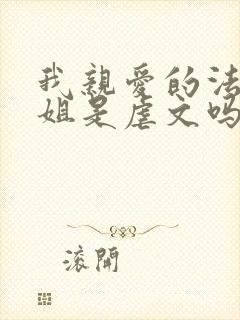 我親愛的法
姐是虐文吗
滚開